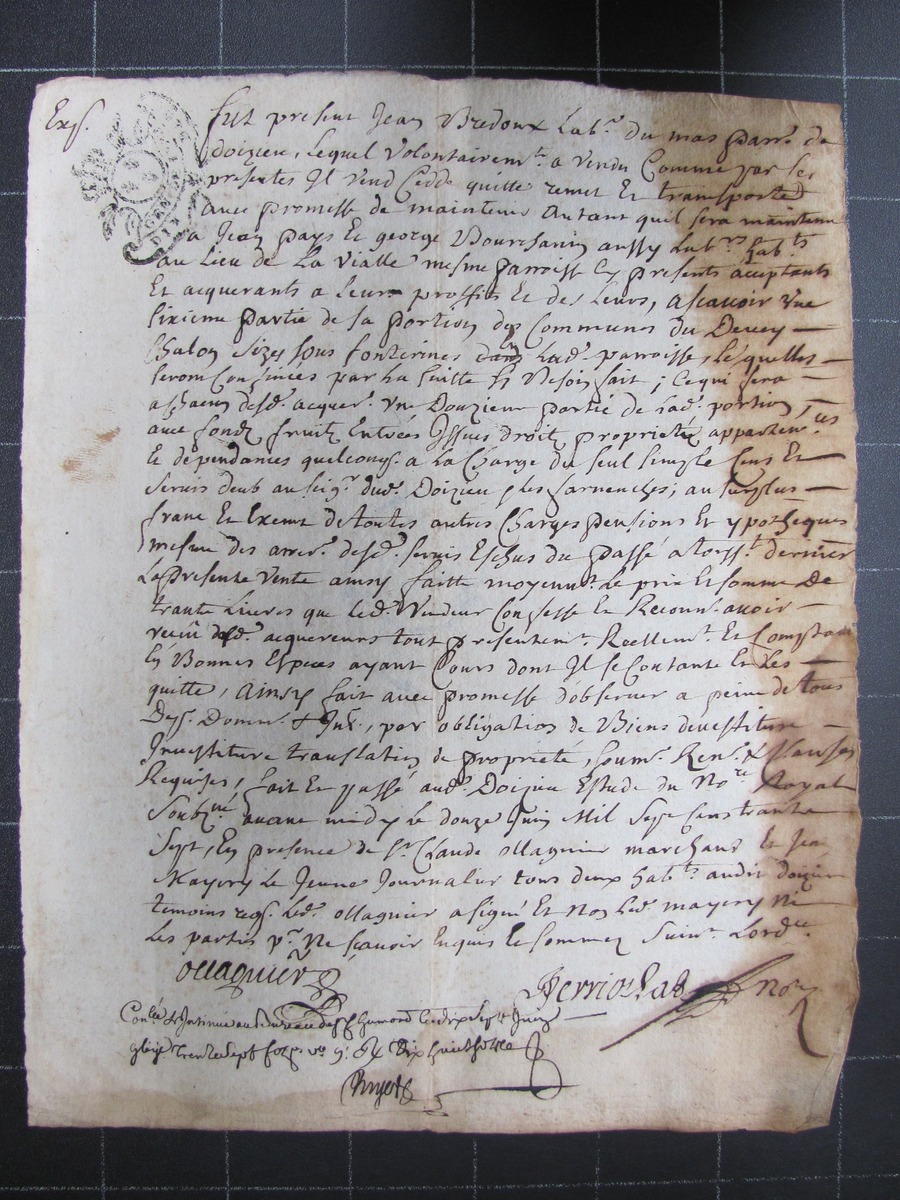 Exp.
fut present Jean Bredoux Lab.r du mas parr. de
doizieu, Lequel volontairem.t a vendu Comme par les
presentes Il vend Cedde quitte remet Et transporte
avec promesse de maintenir autant quil sera maintenu
a Jean pays Et george Bourchanin aussy Lab.rs hab.ts
au Lieu de La Vialle mesme parroisse Cy presents aceptants
Et acquerants a Leurs proffits Et des Leurs, ascavoir Une
sixieme partie de sa portion des Communes du Devey
Chalon sizes sous fonterines dans Lad. parroisse, Lequelles
seront Confinées par La suitte si Besoin fait; Ce qui sera
a chacun desd. acquer. Une Douzieme partie de Lad. portion,
avec fondz fruitz Entrées Issues droit proprietés apparten.ces
Et dependances quelconq. a La Charge du seul simple Cens Et
servis deub au seig.r dud. Doizieu et les farnenches; au surplus
franc Et Exempt de toutes autres Charges pensions Et ypotheques
mesme des arrer. desd. servis Eschus du passé a toiss.t dernier
La presente vente ainsy faitte moyenn.t Le prix Et somme De
trante Livres que Led. Vendeur Confesse Et Reconn. avoir
receu desd. acquereurs tout presentem.t Reellem.t Et Comptant
En Bonnes Especes ayant Cours dont Il se Contante Et Les
quitte, ainsy fait avec promesse d'observer a peine de tous
Dep. Domm. & Int., par obligation de Biens devestiture
Investiture translation de proprieté, soum. Ren. & Clauses
Requises, fait Et passé aud. Doizieu Estude du No.re Royal
soubz.né avant midy Le douze Juin Mil Sept cens trante
Sept, En presence de s.r Claude ollagnier marchand Et Jean
Mayery Le Jeune Journalier tous deux hab.ts audit doizieu
temoins req. Led. ollagnier a signé Et non Led. mayery ni
Les parties p.r Ne sçavoir Enquis Et sommez Suiv.t Lord.ce
ollagnier
Perriolas No.re
Con.lé & Insinué au Bureau de S.t Chamond Le dix sept Juin
trente sept